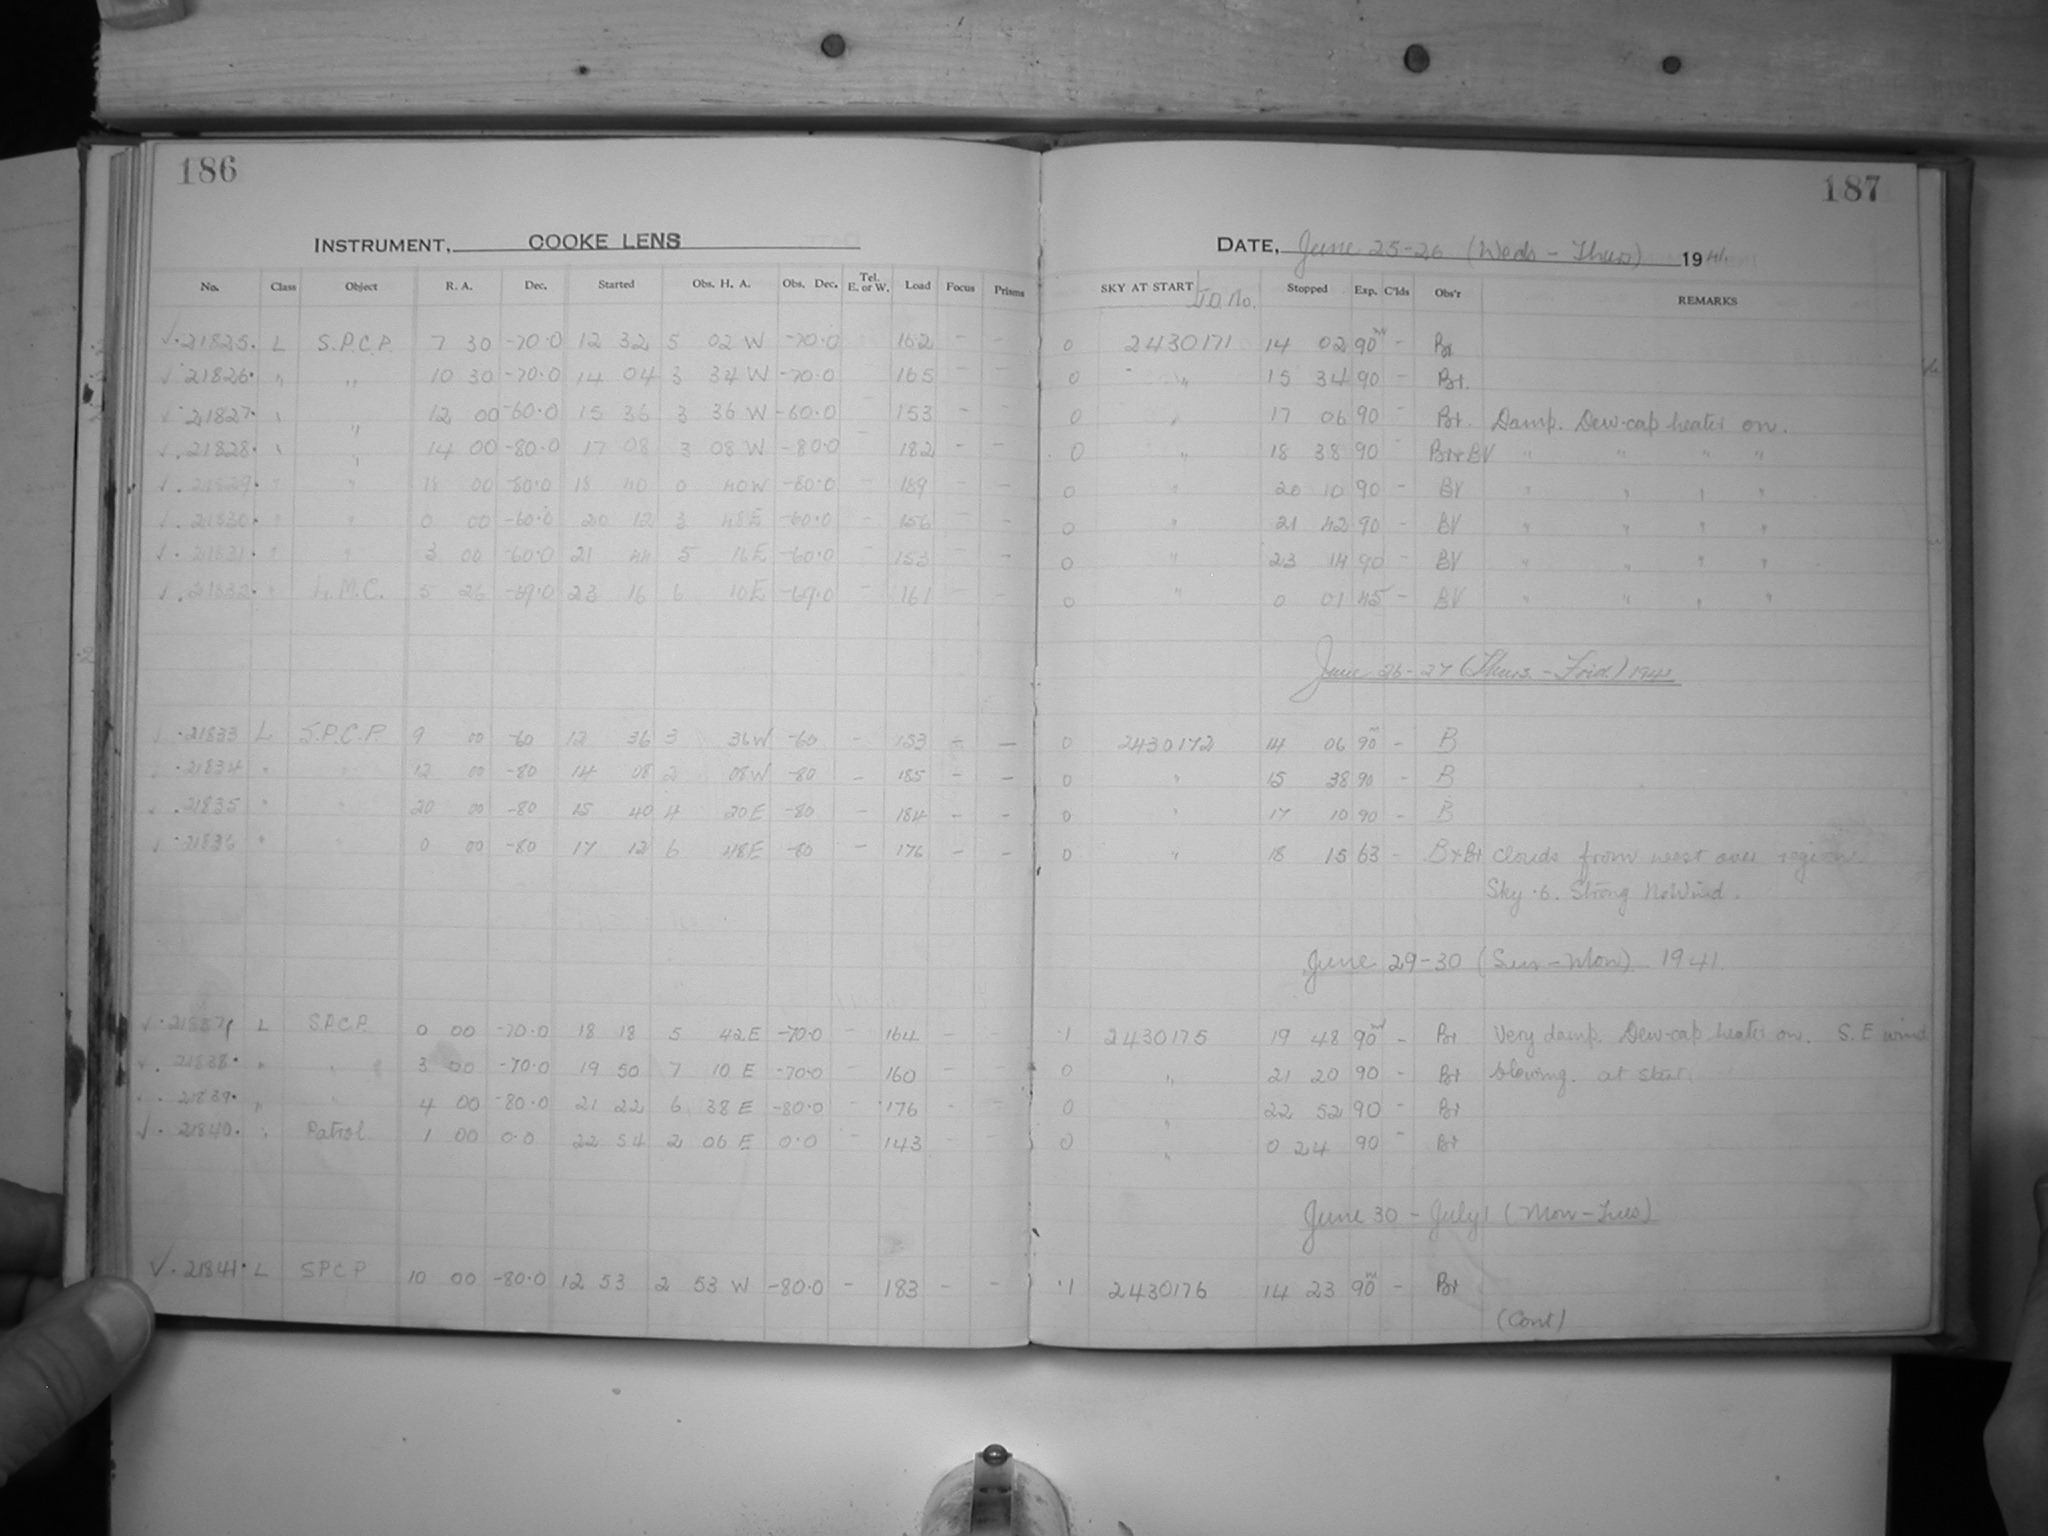 186
187
INSTRUMENT, COOKE LENS
DATE, June 25-26 (Weds - Thurs) 1941
No. Class Object R. A. Dec. Started Obs. H. A. Obs. Dec. Tel. E. or W. Load Focus Prisms SKY AT START J.D. No. Stopped Exp. C'lds Obs'r REMARKS
√ · 21825 · L S.P.C.P. 7 30 -70.0 12 32 5 02 W -70.0 162 - - 0 2430171 14 02 90m - Bt
√ · 21826 · " " 10 30 -70.0 14 04 3 34 W -70.0 165 - - 0 " 15 34 90 - Bt.
√ · 21827 · " " 12 00 -60.0 15 36 3 36 W -60.0 - 153 - - 0 " 17 06 90 - Bt. Damp. Dew-cap heater on.
√ · 21828 · " " 14 00 -80.0 17 08 3 08 W -80.0 - 182 - - 0 " 18 38 90 Bt+BV " " " "
√ · 21829 · " " 18 00 -80.0 18 40 0 40 W -80.0 - 189 - - 0 " 20 10 90 - BV " " " "
√ · 21830 · " " 0 00 -60.0 20 12 3 48 E -60.0 - 156 - - 0 " 21 42 90 - BV " " " "
√ · 21831 · " " 3 00 -60.0 21 44 5 16 E -60.0 - 153 - - 0 " 23 14 90 - BV " " " "
√ · 21832 · " L.M.C. 5 26 -69.0 23 16 6 10 E -69.0 - 161 - - 0 " 0 01 45 - BV " " " "
June 26-27 (Thurs. - Frid.) 1941
√ · 21833 L S.P.C.P. 9 00 -60 12 36 3 36 W -60 - 153 - - 0 2430172 14 06 90m - B
√ · 21834 " " 12 00 -80 14 08 2 08 W -80 - 185 - - 0 " 15 38 90 - B
√ · 21835 " " 20 00 -80 15 40 4 20 E -80 - 184 - - 0 " 17 10 90 - B
√ · 21836 " " 0 00 -80 17 12 6 48 E -80 - 176 - - 0 " 18 15 63 - B+Bt Clouds from west over region.
Sky .6. Strong NoWind.
June 29-30 (Sun - Mon) 1941.
√ · 21837 L S.P.C.P. 0 00 -70.0 18 18 5 42 E -70.0 - 164 - - .1 2430175 19 48 90m - Bt Very damp. Dew-cap heater on. S. E wind
√ · 21838 · " " 3 00 -70.0 19 50 7 10 E -70.0 - 160 - - 0 " 21 20 90 - Bt blowing. at start.
√ · 21839 · " " 4 00 -80.0 21 22 6 38 E -80.0 - 176 - - 0 " 22 52 90 - Bt
√ · 21840 · " Patrol 1 00 0.0 22 54 2 06 E 0.0 - 143 - - 0 " 0 24 90 - Bt
June 30 - July 1 (Mon - Tues)
√ · 21841 · L S.P.C.P. 10 00 -80.0 12 53 2 53 W -80.0 - 183 - - .1 2430176 14 23 90m - Bt
(Cont)